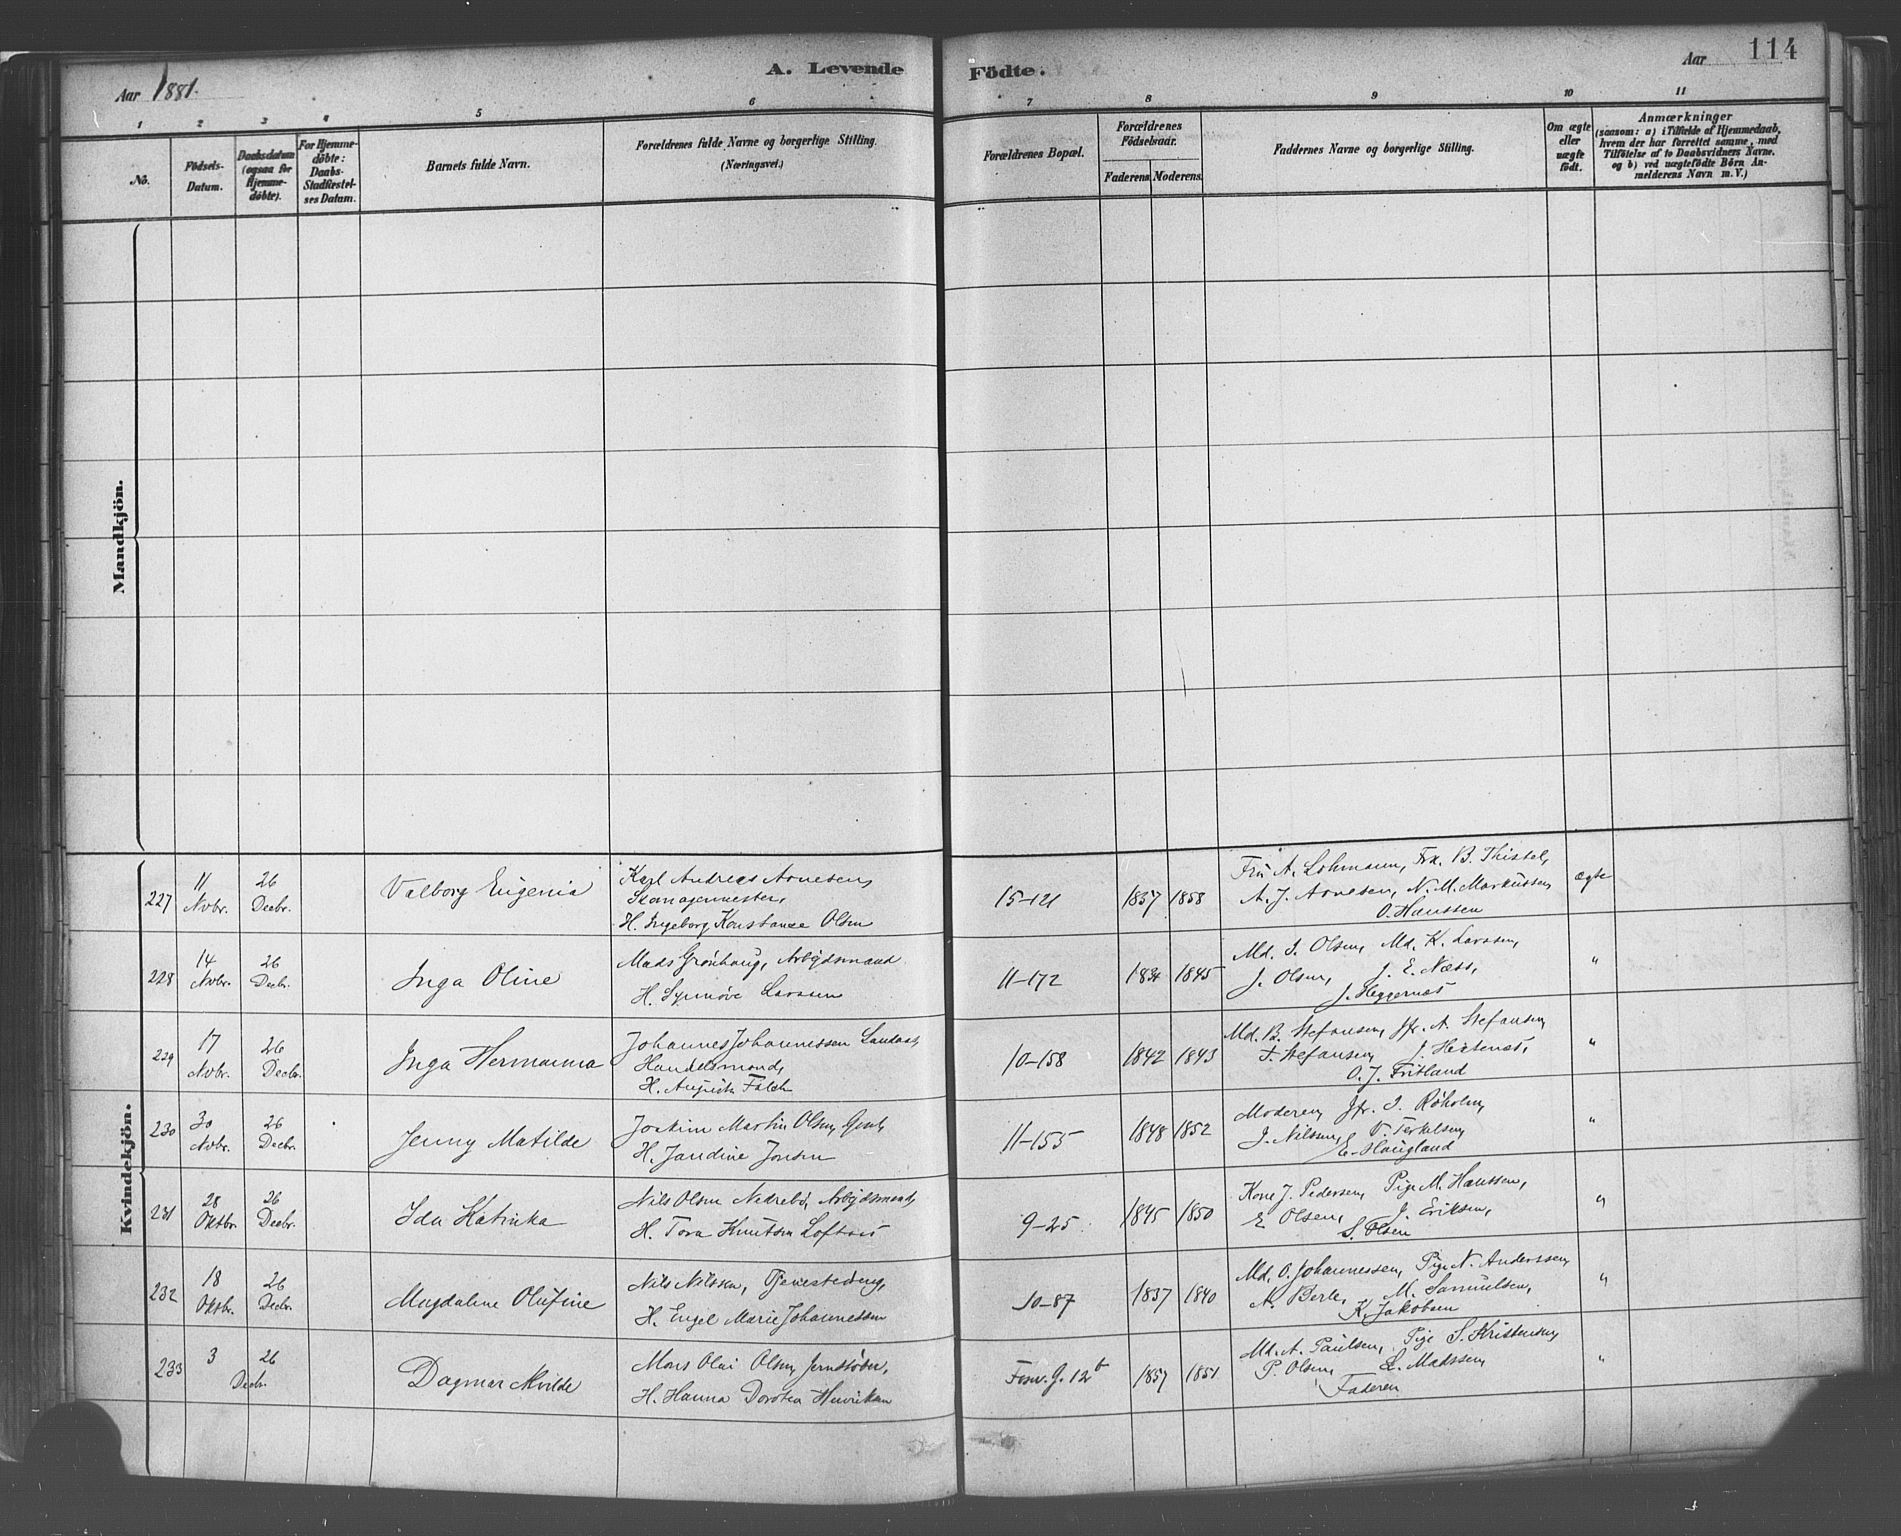 Aar 1881.
A. Levende
Födte.
Aar
114
1
2
3
4
5
6
7
8
9
10
11
No.
Födsels-
Datum.
Daabsdatum
(ogsaa for
Hjemme-
döbte).
For Hjemme-
döbte:
Daabs-
Stadfæstel-
ses Datum.
Barnets fulde Navn.
Forældrenes fulde Navne og borgerlige Stilling.
(Næringsvei.)
Forældrenes Bopæl.
Forældrenes
Födselsaar.
Faderens.
Moderens.
Faddernes Navne og borgerlige Stilling.
Om ægte
eller
uægte
födt.
Anmærkninger
(saasom: a) i Tilfælde af Hjemmedaab,
hvem der har forrettet samme, med
Tilföielse af to Daabsvidners Navne,
og b) ved uægtefödte Börn An-
melderens Navn m. V.)
Mandkjön.
Kvindekjön.
227
11
Nvbr.
26
Decbr.
Valborg Eugenia
Karl Andreas Arnesen,
H. Ingeborg Konstance Olsen
15-121
1857 1858
Fru A. Lohmann, Frk. B. Thistel,
A. J. Arnesen, N. M. Markussen,
O. Hanssen
ægte
228
14
Nvbr.
26
Decbr.
Inga Oline
Mads Grönhaug, Arbejdsmand
H. Synnöve Larssen
11-172
1834 1845
Md. I. Olsen, Md. K. Larssen,
J. Olsen, J. E. Næss,
J. Heggernæs
"
229
17
Nvbr.
26
Decbr.
Inga Hermanna
Johannes Johannessen Landaas,
Handelsmand,
H. Augusta Falch
10-158
1842 1843
Md. B. Stefansen, Jfr. A. Stefansen
F. Stefansen,
O. J. Fritland
"
230
30
Nvbr.
26
Decbr.
Jenny Matilde
Joakim Martin Olsen
H. Jandine Jonsen
11-155
1848 1852
Moderen, Jfr. I. Röholm,
J. Nilssen, T. Terkelsen,
E. Haugland
"
231
28
Oktbr.
26
Decbr.
Ida Katinka
Nils Olsen Nedrebö, Arbejdsmand,
H. Tora Knutsen
9-25
1845 1850
Kone J. Pedersen, Pige M. Hanssen,
E Olsen, J. Eriksen,
S. Olsen
"
232
18
Oktbr.
26
Decbr.
Magdaline Olufine
Nils Nilssen, Tjenestedreng,
H. Engel Marie Johannessen
10-87
1837 1840
Md. O. Johannessen, Pige N. Anderssen,
A. Berle, M. Samuelsen,
K. Jakobsen
"
233
3
26
Decbr.
Dagmar Alvilde
Mons Olai Olsen, Jernstöber,
H. Hanna Dorotea Henriksen
12b
1857 1851
Md. A. Paulsen, Pige S. Kristensen,
P. Olsen, L. Madssen,
Faderen
"